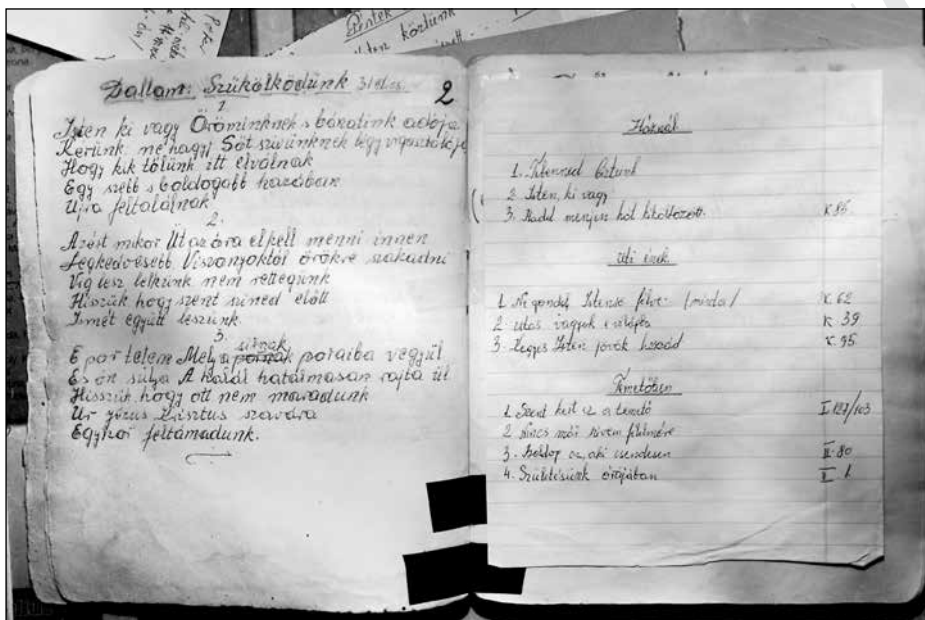 Péntek
Isten köztünk
Dallam: Szűkölködünk
2
1.
Isten ki vagy Öröminknek s bánatink adója
Kérünk, ne hagyj Sőt szívünknek légy vigasztalója
Hogy kik tőlünk itt elválnak
Egy szebb s boldogabb hazában
Újra feltalálnak
2.
Azért mikor Út az óra el kell menni innen
Legkedvesebb Viszonyoktól örökre szakadni
Víg lesz lelkünk nem rettegünk
Hisszük hogy szent színed előtt
Ismét együtt leszünk.
3.
E por tetem Mely a pornak sírnak poraiba vegyül
És ön súlya A halál hatalmasan rajta ül
Hisszük hogy ott nem maradunk
Úr Jézus Krisztus szavára
Egykor feltámadunk.
Háznál
1. Istenned
2. Isten, ki vagy
3. Hadd menjen hol K 86.
Úti ének
1. Ne gondolj Istense félve K 62
2. Utas vagyok K 39
3. Kegyes Isten jövök hozzád K 95
Temetőben
1. Szent kert ez a temető I 127/103
2. Nincs már szívem félelmére
3. Boldog az, aki csendesen II. 80
4. Születésünk órájában II 1